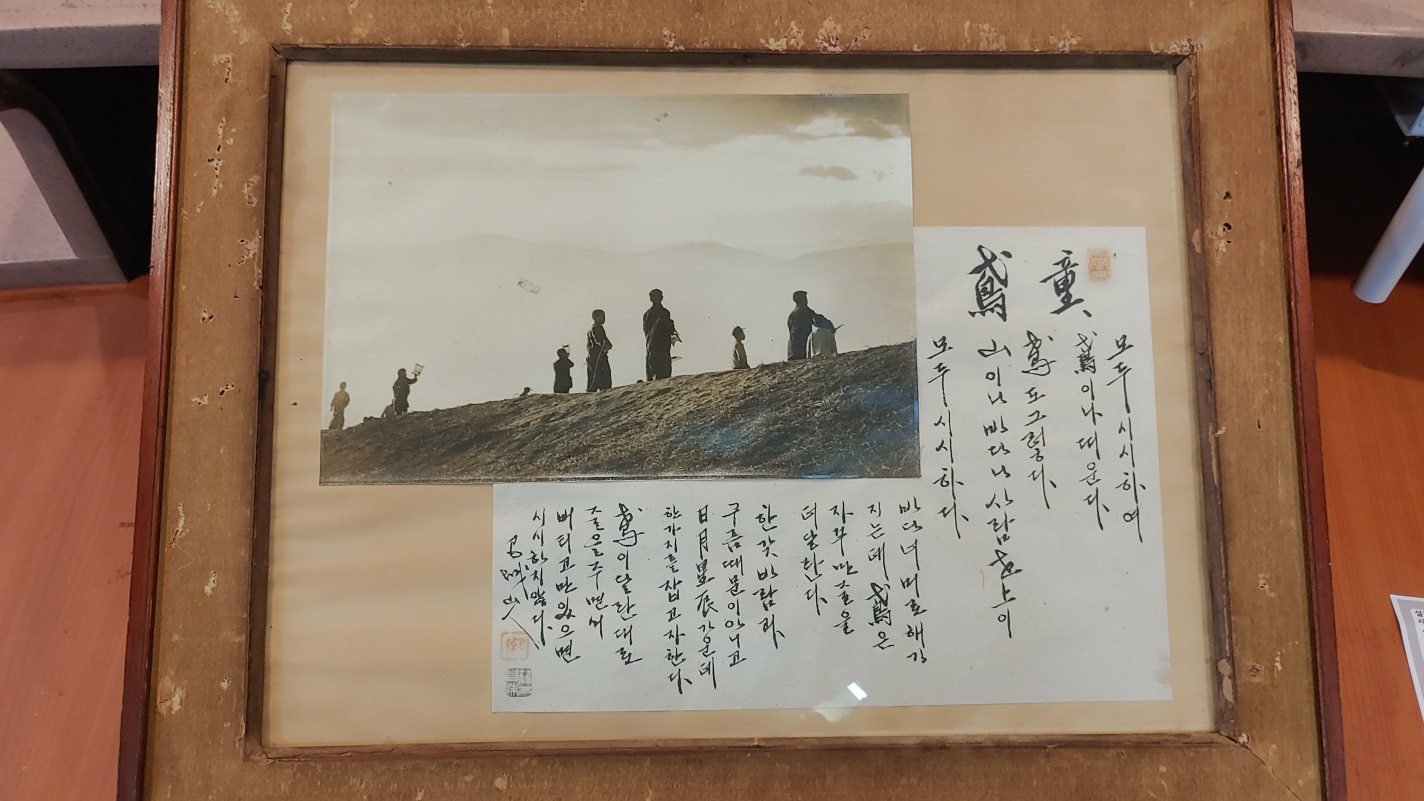 童鳶
모두 시시하여
鳶이나 띠운다.
鳶도 그렇다.
山이나 바다나 사람 世上이
모두 시시하다.
바다 너머로 해가
지는데 鳶은
자꾸만 줄을
더 달란다.
한갖 바람과
구름 때문이 아니고
日月星辰 가운데
한가지를 잡고자 한다.
鳶이 달란대로
줄을 주면서
버티고만 있으면
시시하지 않다.